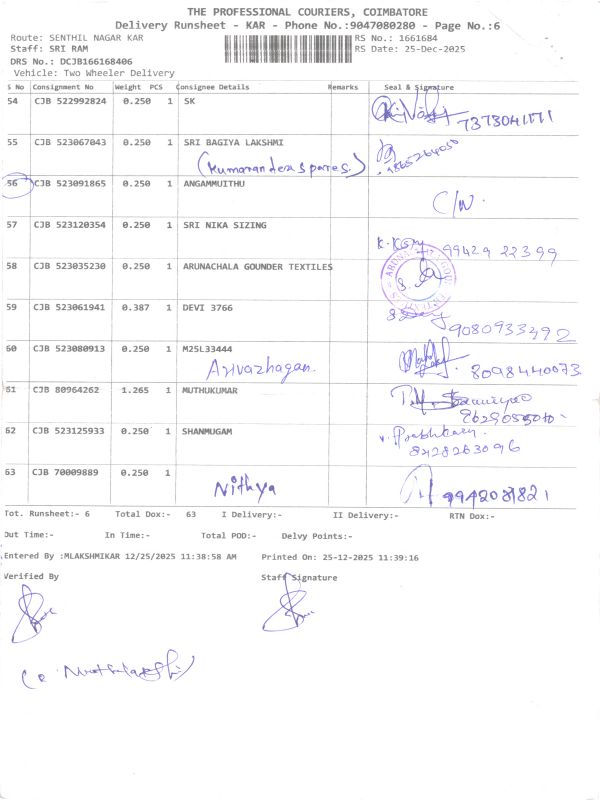 THE PROFESSIONAL COURIERS, COIMBATORE
Delivery Runsheet - KAR - Phone No.:9047080280 - Page No.:6
Route: SENTHIL NAGAR KAR
RS No.: 1661684
Staff: SRI RAM
RS Date: 25-Dec-2025
DRS No.: DCJB166168406
Vehicle: Two Wheeler Delivery
S No Consignment No Weight PCS Consignee Details Remarks Seal & Signature
54 CJB 522992824 0.250 1 SK 7373041171
55 CJB 523067043 0.250 1 SRI BAGIYA LAKSHMI
56 CJB 523091865 0.250 1 ANGAMMUITHU C/N.
57 CJB 523120354 0.250 1 SRI NIKA SIZING 99429 22399
58 CJB 523035230 0.250 1 ARUNACHALA GOUNDER TEXTILES
59 CJB 523061941 0.387 1 DEVI 3766 9080933492
60 CJB 523080913 0.250 1 M25L33444
Arivazhagan. 8098440073
61 CJB 80964262 1.265 1 MUTHUKUMAR
62 CJB 523125933 0.250 1 SHANMUGAM
63 CJB 70009889 0.250 1
Nithya
Tot. Runsheet:- 6 Total Dox:- 63 I Delivery:- II Delivery:- RTN Dox:-
Out Time:- In Time:- Total POD:- Delvy Points:-
Entered By :MLAKSHMIKAR 12/25/2025 11:38:58 AM Printed On: 25-12-2025 11:39:16
Verified By Staff Signature